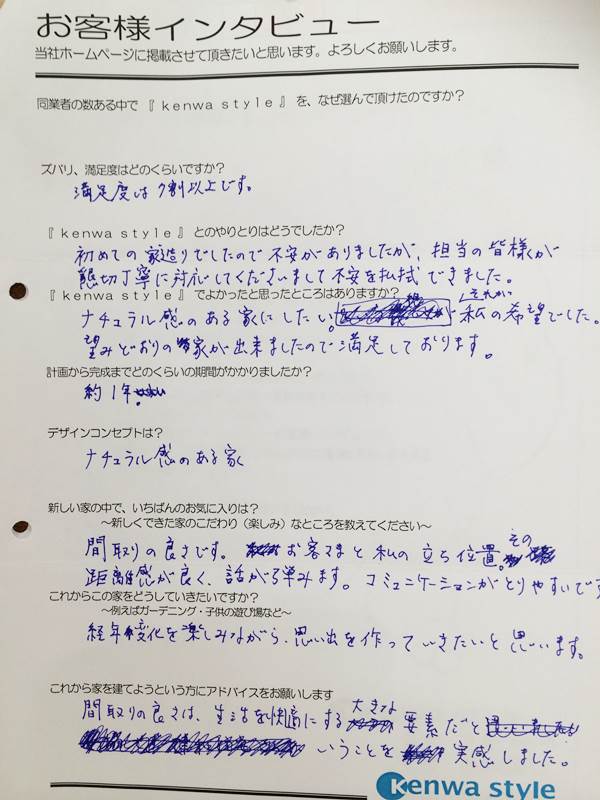 お客様インタビュー
当社ホームページに掲載させて頂きたいと思います。よろしくお願いします。
同業者の数ある中で『kenwa style』を、なぜ選んで頂けたのですか？
ズバリ、満足度はどのくらいですか？
満足度は9割以上です。
『kenwa style』とのやりとりはどうでしたか？
初めての家造りでしたので不安がありましたが、担当の皆様が
懇切丁寧に対応してくださいまして不安を払拭できました。
『kenwa style』でよかったと思ったところはありますか？
ナチュラル感のある家にしたい。それが、私の希望でした。
望みどおりの家が出来ましたので満足しております。
計画から完成までどのくらいの期間がかかりましたか？
約1年。
デザインコンセプトは？
ナチュラル感のある家
新しい家の中で、いちばんのお気に入りは？
～新しくできた家のこだわり（楽しみ）なところを教えてください～
間取りの良さです。お客さまと私の立ち位置。その
距離感が良く、話がはずみます。コミュニケーションがとりやすいです
これからこの家をどうしていきたいですか？
～例えばガーデニング・子供の遊び場など～
経年変化を楽しみながら、思い出を作っていきたいと思います。
これから家を建てようという方にアドバイスをお願いします
間取りの良さは、生活を快適にする大きな要素だと
いうことを実感しました。
Kenwa style